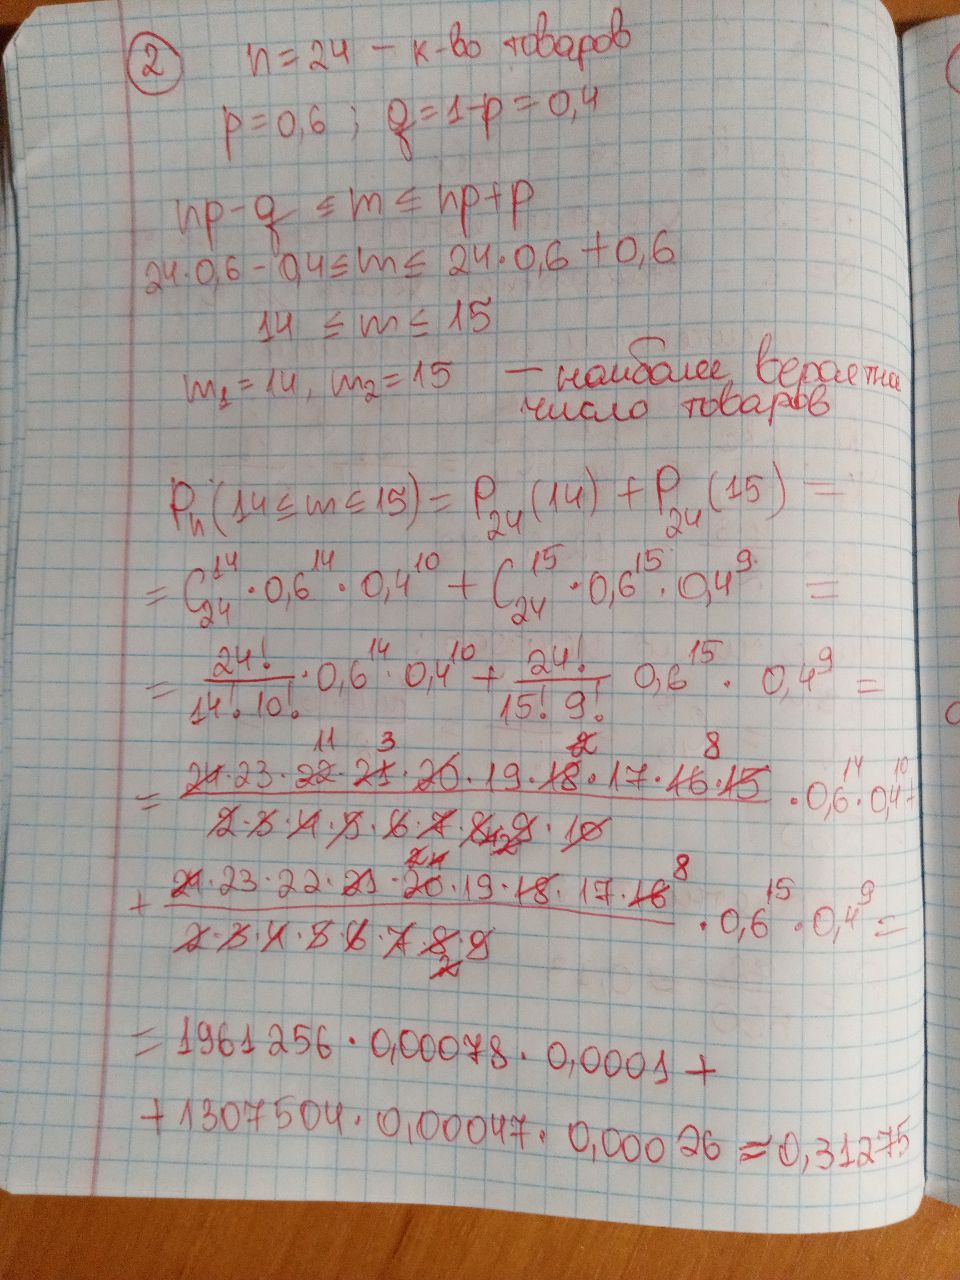 2 n = 24 – к-во товаров
p = 0,6 ; q = 1-p = 0,4
np - q ≤ m ≤ np + p
24·0,6 - 0,4 ≤ m ≤ 24·0,6 + 0,6
14 ≤ m ≤ 15
m₁ = 14, m₂ = 15 – наиболее вероятна
число товаров
Pₙ(14 ≤ m ≤ 15) = P₂₄(14) + P₂₄(15) =
= C₂₄¹⁴ · 0,6¹⁴ · 0,4¹⁰ + C₂₄¹⁵ · 0,6¹⁵ · 0,4⁹ =
= 24!/(14! 10!) · 0,6¹⁴ · 0,4¹⁰ + 24!/(15! 9!) 0,6¹⁵ · 0,4⁹ =
11 3 2 8
= 24·23·22·21·20·19·18·17·16·15 · 0,6¹⁴ · 0,4¹⁰ +
2·3·4·5·6·7·8·9·10
+ 24·23·22·21·20·19·18·17·16 8 · 0,6¹⁵ · 0,4⁹ =
2·3·4·5·6·7·8·9
2
= 1961256 · 0,00078 · 0,0001 +
+ 1307504 · 0,00047 · 0,00026 ≈ 0,31275